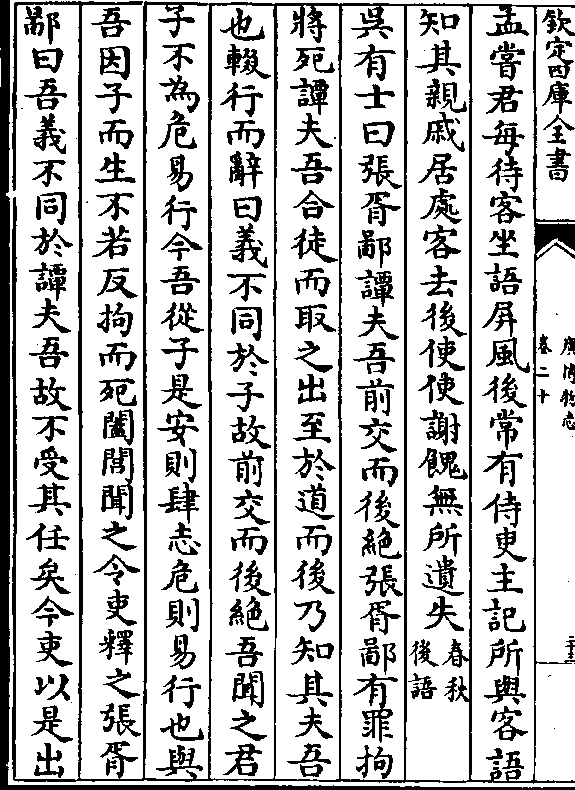 欽定四庫全書
廣博物志
卷二十
孟嘗君每待客坐語屏風後常有侍史主記所與客語
知其親戚居處客去後使使謝餽無所遺失春秋後語
吳有士曰張胥鄙譚夫吾前交而後絶張胥鄙有罪拘
將死譚夫吾合徒而取之出至於道而後乃知其夫吾
也輟行而辭曰義不同於子故前交而後絶吾聞之君
子不為危易行今吾從子是安則肆志危則易行也與
吾因子而生不若反拘而死闔閭聞之令吏釋之張胥
鄙曰吾義不同於譚夫吾故不受其任矣今吏以是出